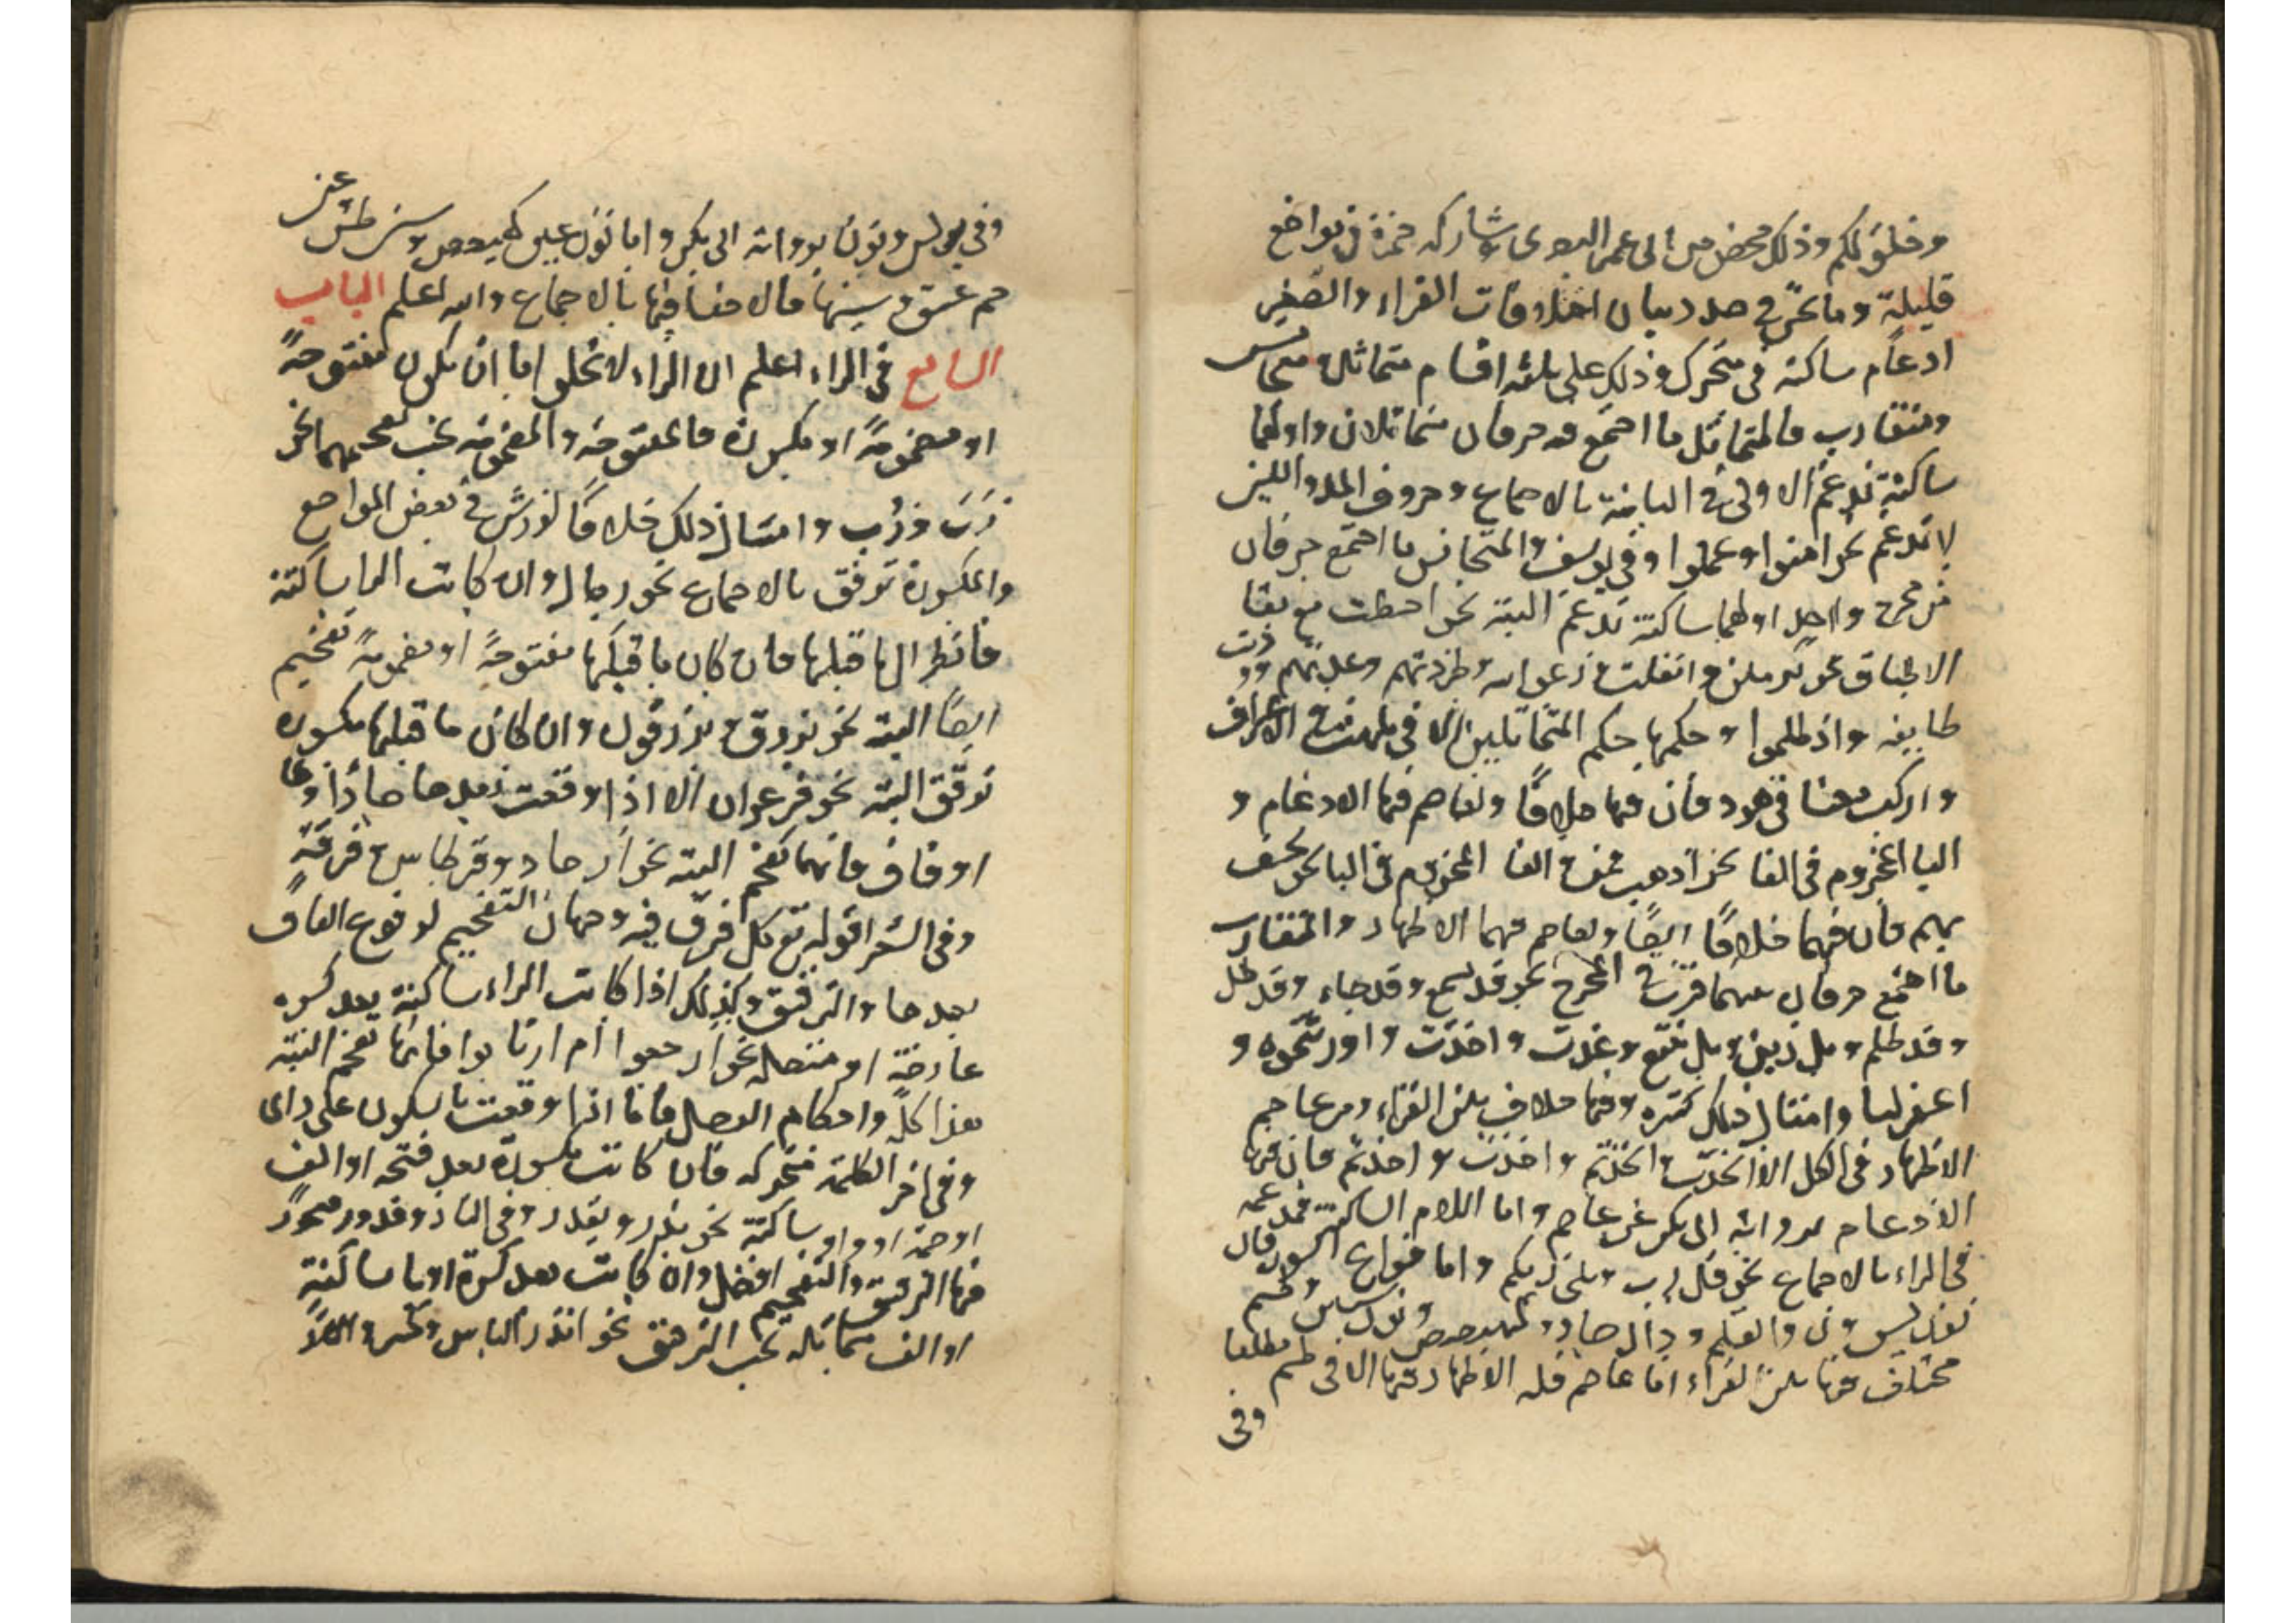 وخلق لكم وذلك محض من ابى عمرو البصرى وشاركه حمزة فى مواضع
قليلة وما نحن فى صدد بيان اختلافات القراء والصغير
ادغام ساكنة فى متحرك وذلك على ثلثة اقسام متماثل متجانس
ومتقارب فالمتماثل ما اجتمع فيه حرفان متماثلان واولهما
ساكنة تدغم الاولى فى الثانية بالاجماع وحروف المد واللين
لا تدغم نحو امنوا وعملوا وفى يوسف والمتجانس ما اجتمع حرفان
من مخرج واحد اولهما ساكنة تدغم البتة نحو احطت مع بقا
الاطباق نحو واثقلت دعوا الله وطردتهم وعدتهم وودت
طايفة واذ ظلموا وحكمها حكم المتماثلين الا فى يلهث فى الاعراف
واركب معنا فى هود فان فيها خلافا ولعاصم فيها الادغام و
البا المجزوم فى الفا نحو اذهب فمن والفا المجزوم فى البا نحو نخسف
بهم فان فيهما خلافا ايضا ولعاصم فيهما الاظهار والمتقارب
ما اجتمع حرفان بينهما قرب فى المخرج نحو قد سمع وقد جاء وقد ضل
وقد ظلم وبل زين وبل نتبع وعذت واخذت واورثتموه و
اغفر لنا وامثال ذلك كثيرة وفيها خلاف بين القراء ومر عاصم
الاظهار فى الكل الا اتخذت اتخذتم واخذت واخذتم فان فيها
الادغام برواية ابى بكر عن عاصم واما اللام الساكنة فمدغمة
فى الراء بالاجماع نحو قل رب وبل ربكم واما فواتح السور فان
نون يس ون والقلم ودال صاد كهيعص ونون سين طسم
مختلف فيها بين القراء اما عاصم فله الاظهار فيها الا فى طسم مطلقا
وفى
وفى يونس ونون برواية ابى بكر واما نون عين كهيعص وسين طس عن
حم عسق وسينها فالاخفا فيها بالاجماع والله اعلم الباب
السابع فى الراء اعلم ان الراء لا تخلو اما ان يكون مفتوحة
او مضمومة او مكسورة فالمفتوحة والمضمومة يجب تفخيمهما نحو
رَبّ ورُبّ وامثال ذلك خلافا لورش فى بعض المواضع
والمكسورة ترقق بالاجماع نحو رجال وان كانت الرا ساكنة
فانظر الى ما قبلها فان كان ما قبلها مفتوحة او مضمومة تفخيم
ايضا البتة نحو وترزقون وان كان ما قبلها مكسورة
ترقق البتة نحو فرعون الا اذا وقعت بعدها صادا وطا
او قاف فانها تفخم البتة نحو ارصاد وقرطاس وفرقة
وفى الشعرا قوله تع كل فرق فيه وجهان التفخيم لوقوع القاف
بعدها والترقيق وكذلك اذا كانت الراء ساكنة بعد كسرة
عارضة او منفصلة نحو ارجعوا ام ارتابوا فانها تفخم البتة
هذا كله واحكام الوصل فاما اذا وقعت بالسكون على راء
وفى اخر الكلمة متحركة فان كانت مكسورة بعد فتحة او الف
او ضمة او واو ساكنة نحو بقدر وفى النار وقدور
فيها الترقيق والتفخيم افضل وان كانت بعد كسرة او يا ساكنة
او الف ممالة يجب الترقيق نحو انذر الناس